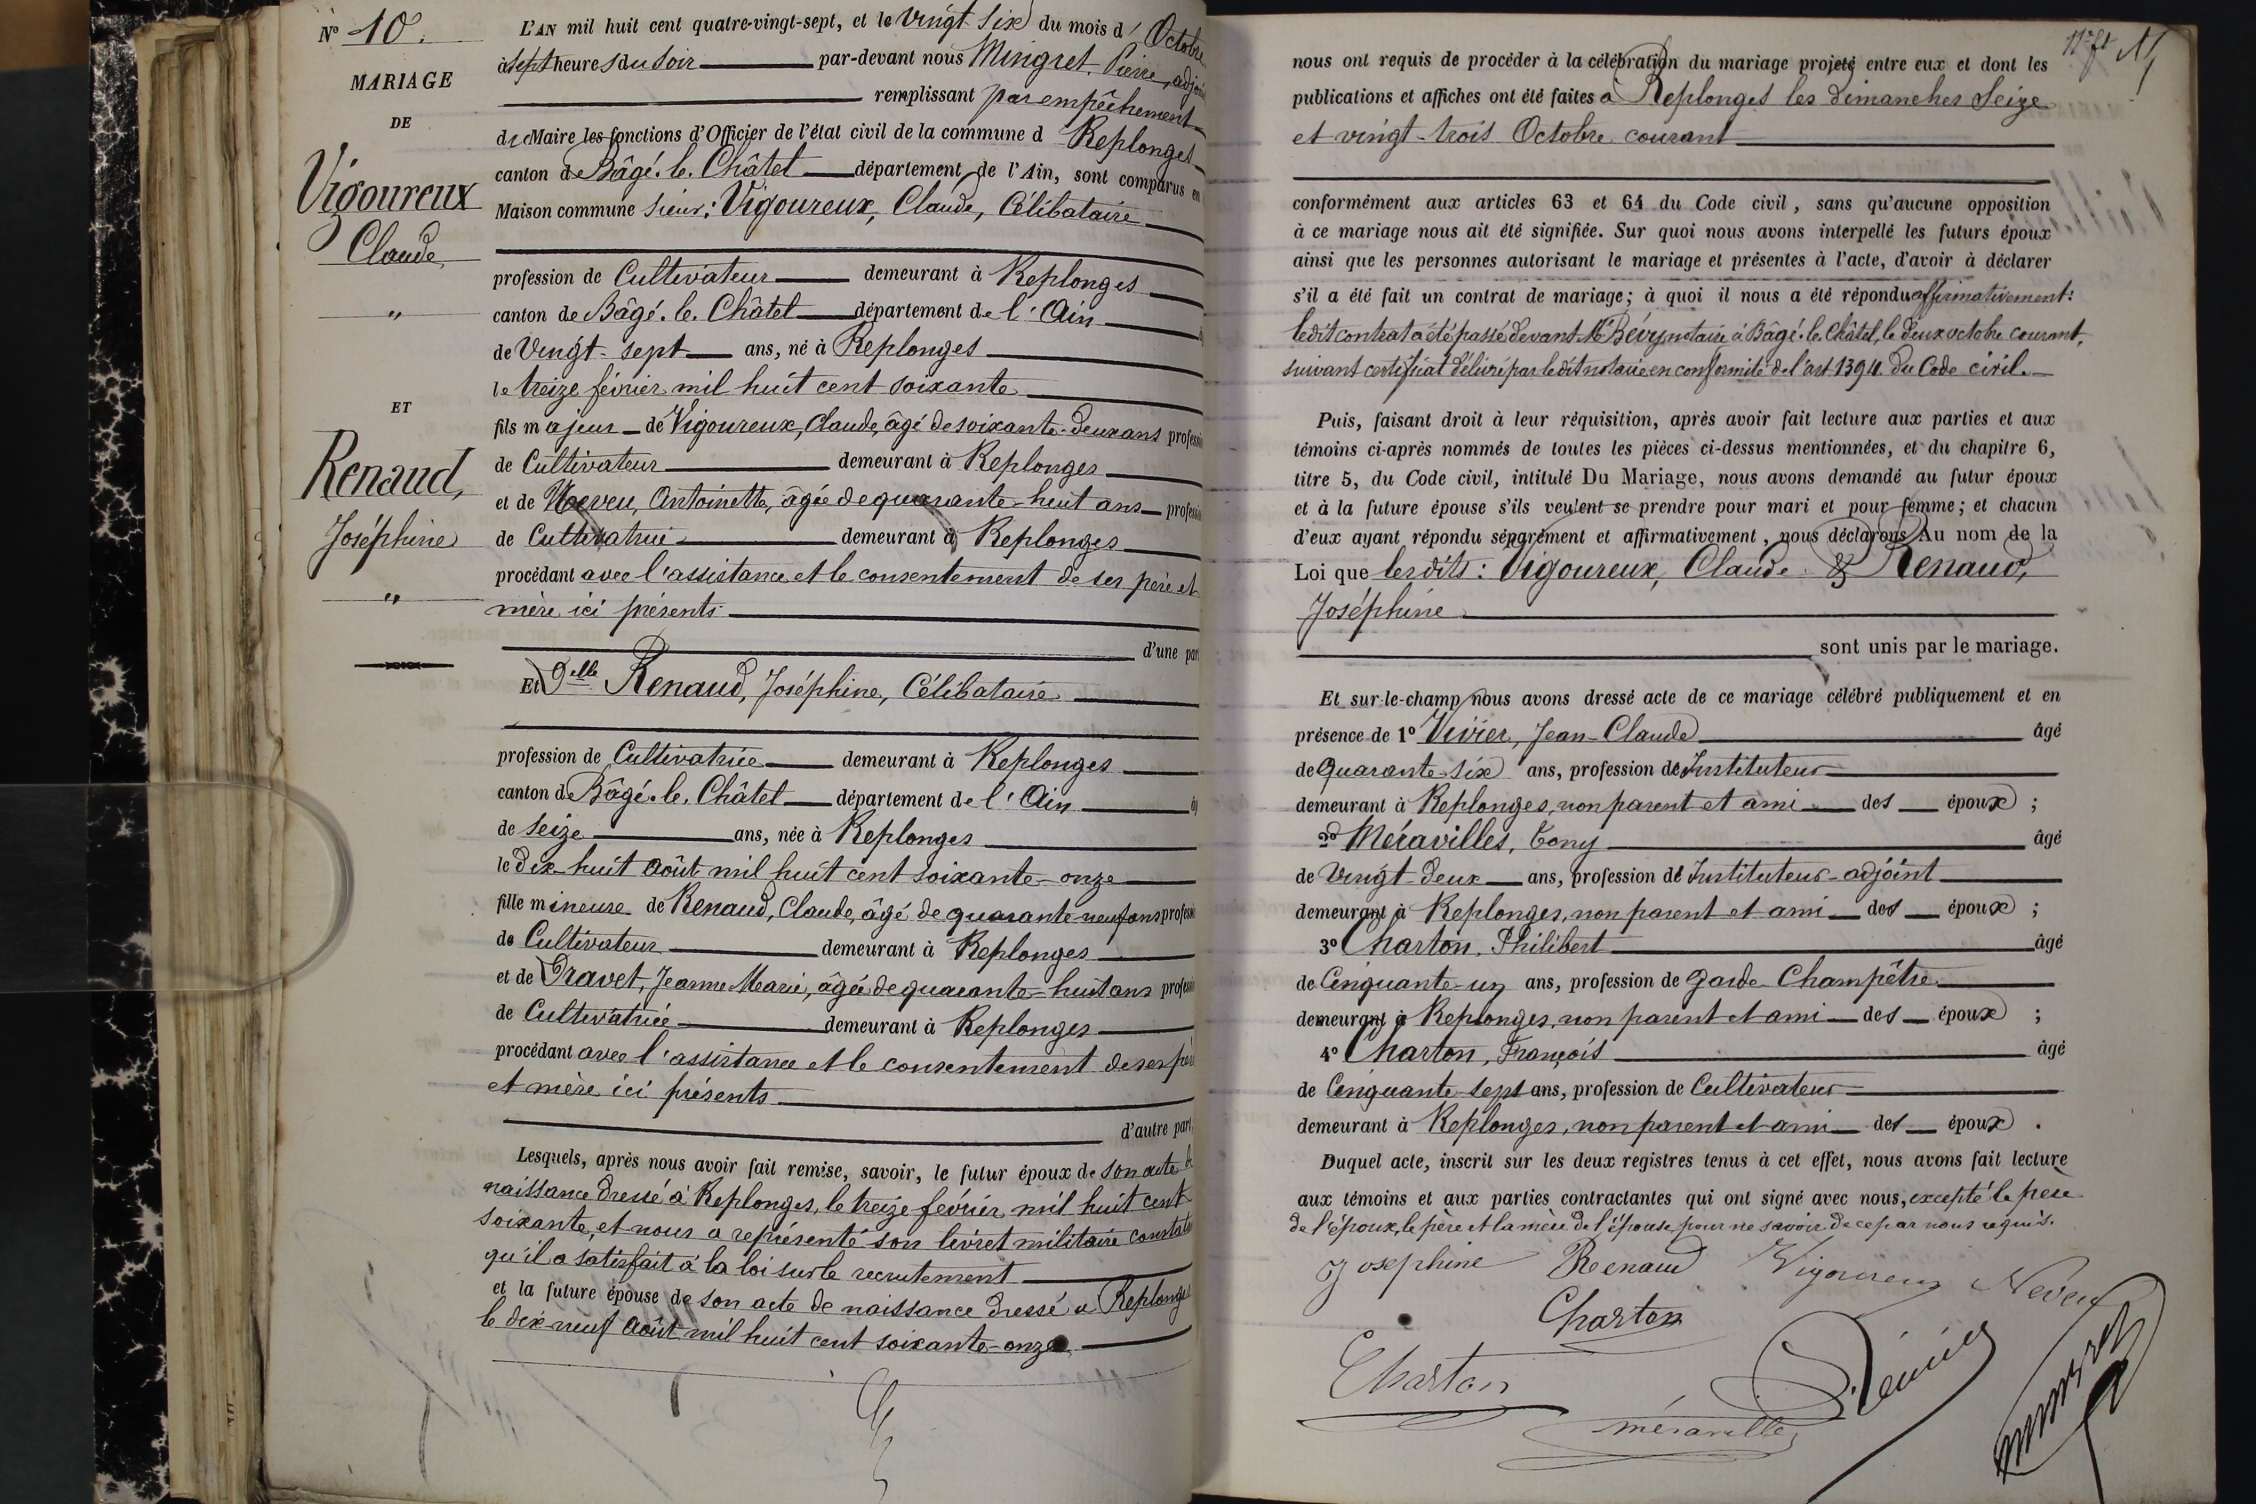 N° 10.
MARIAGE
DE
Vigoureux
Claude
"
ET
Renaud,
Joséphine
"
L'AN mil huit cent quatre-vingt-sept, et le vingt six du mois d' Octobre
à sept heures du soir par-devant nous Mingret, Pierre, adjoint
remplissant par empêchement
du Maire les fonctions d'Officier de l'état civil de la commune d Replonges
canton de Bâgé-le-Châtel département de l'Ain, sont comparus en
Maison commune sieur: Vigoureux, Claude, Célibataire
profession de Cultivateur demeurant à Replonges
canton de Bâgé-le-Châtel département de l'Ain
de vingt-sept ans, né à Replonges
le treize février mil huit cent soixante
fils majeur de Vigoureux, Claude, âgé de soixante-deux ans profession
de Cultivateur demeurant à Replonges
et de Neveu, Antoinette, âgée de quarante-huit ans profession
de Cultivatrice demeurant à Replonges
procédant avec l'assistance et le consentement de ses père et
mère ici présents
d'une part
Et Delle Renaud, Joséphine, Célibataire
profession de Cultivatrice demeurant à Replonges
canton de Bâgé-le-Châtel département de l'Ain
de seize ans, née à Replonges
le dix-huit Août mil huit cent soixante-onze
fille mineure de Renaud, Claude, âgé de quarante-neuf ans profession
de Cultivateur demeurant à Replonges
et de Gravet, Jeanne Marie, âgée de quarante-huit ans profession
de Cultivatrice demeurant à Replonges
procédant avec l'assistance et le consentement de ses père
et mère ici présents
d'autre part.
Lesquels, après nous avoir fait remise, savoir, le futur époux de son acte de
naissance dressé à Replonges, le treize février mil huit cent
soixante, et nous a représenté son livret militaire constatant
qu'il a satisfait à la loi sur le recrutement
et la future épouse de son acte de naissance dressé a Replonges
le dix-neuf Août mil huit cent soixante-onze
11e ft
nous ont requis de procéder à la célébration du mariage projeté entre eux et dont les
publications et affiches ont été faites a Replonges les dimanches seize
et vingt-trois Octobre courant
conformément aux articles 63 et 64 du Code civil, sans qu'aucune opposition
à ce mariage nous ait été signifiée. Sur quoi nous avons interpellé les futurs époux
ainsi que les personnes autorisant le mariage et présentes à l'acte, d'avoir à déclarer
s'il a été fait un contrat de mariage; à quoi il nous a été répondu affirmativement:
ledit contrat a été passé devant Me Bévy notaire à Bâgé-le-Châtel, le deux octobre courant,
suivant certificat délivré par ledit notaire en conformité de l'art 1394 du Code civil.
Puis, faisant droit à leur réquisition, après avoir fait lecture aux parties et aux
témoins ci-après nommés de toutes les pièces ci-dessus mentionnées, et du chapitre 6,
titre 5, du Code civil, intitulé Du Mariage, nous avons demandé au futur époux
et à la future épouse s'ils veulent se prendre pour mari et pour femme; et chacun
d'eux ayant répondu séparément et affirmativement, nous déclarons Au nom de la
Loi que lesdits: Vigoureux, Claude & Renaud,
Joséphine
sont unis par le mariage.
Et sur-le-champ nous avons dressé acte de ce mariage célébré publiquement et en
présence de 1° Vivier, Jean-Claude âgé
de quarante-six ans, profession de Instituteur
demeurant à Replonges, non parent et ami des époux ;
2° Méravilles, Tony âgé
de vingt-deux ans, profession de Instituteur-adjoint
demeurant à Replonges, non parent et ami des époux ;
3° Charton, Philibert âgé
de Cinquante-un ans, profession de garde-Champêtre
demeurant à Replonges, non parent et ami des époux ;
4° Charton, François âgé
de Cinquante-sept ans, profession de Cultivateur
demeurant à Replonges, non parent et ami des époux .
Duquel acte, inscrit sur les deux registres tenus à cet effet, nous avons fait lecture
aux témoins et aux parties contractantes qui ont signé avec nous, excepté le père
de l'époux, le père et la mère de l'épouse, pour ne savoir de ce par nous requis.
Josephine Renaud Vigoureux Neveu
Charton
Charton
méraville